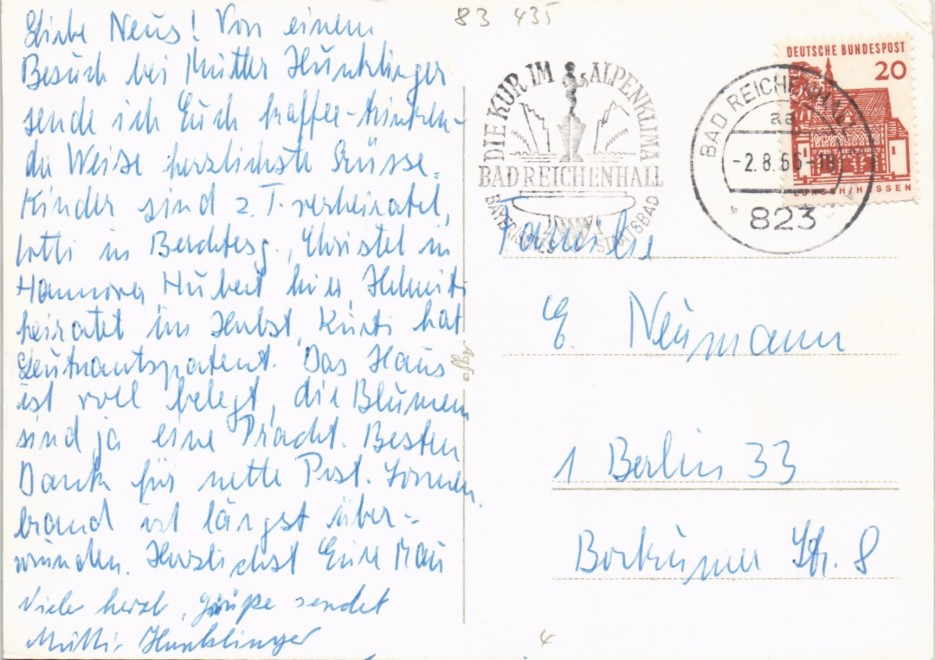 83 435
Liebe Neus! Von einem
Besuch bei Mutter Hunklinger
sende ich Euch kaffee-trinken-
der Weise herzlichste Grüsse.
Kinder sind z. T. verheiratet,
Lotti in Berchtesg., Christel in
Hannover, Hubert hier, Helmuti
heiratet im Herbst, Kurti hat
Leutnantspatent. Das Haus
ist voll belegt, die Blumen
sind ja eine Pracht. Besten
Dank für nette Post. Sonnen-
brand ist längst über-
wunden. Herzlichst Eure Mau
Viele herzl. Grüße sendet
Mutti Hunklinger
Agfa
DIE KUR IM ALPENKLIMA
BAD REICHENHALL
BAYERISCHES STAATSBAD
BAD REICHENHALL
aa
-2.8.66-18
823
DEUTSCHE BUNDESPOST
20
LORSCH/HESSEN
Familie
E. Neumann
1 Berlin 33
Borkumer Str. 8
4